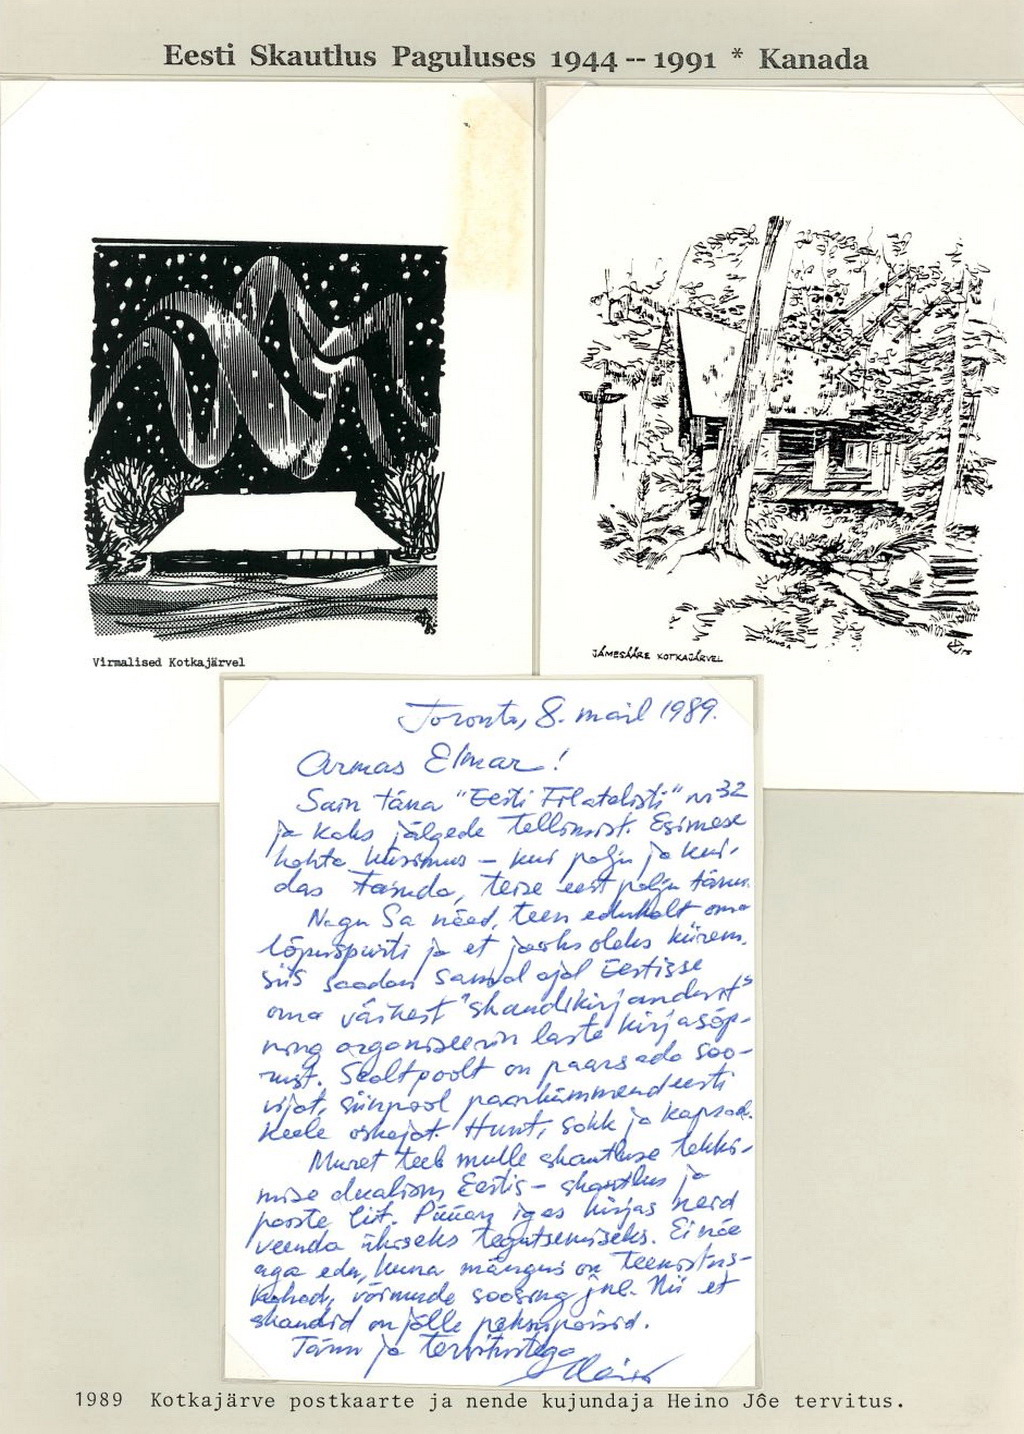 Eesti Skautlus Paguluses 1944 -- 1991 * Kanada
Virmalised Kotkajärvel
JÄMESÄÄRE KOTKAJÄRVEL
Toronto, 8. mail 1989.
Armas Elmar!
Sain täna "Eesti Filatelisti" nr 32
ja kaks jälgede tellimist. Esimese
kohta küsimus – kui palju ja kui-
das tasuda, teise eest palju tänu.
Nagu Sa näed, teen edukalt oma
lõpuspurti ja et jooks oleks kiirem,
siis saadan samal ajal Eestisse
oma väikest "skaudikirjandust"
ning organiseerin laste kirjasõp-
rust. Sealtpoolt on paarsada soo-
vijat, siinpool paarkümmend eesti
keele oskajat. Hunt, sokk ja kapsad.
Muret teeb mulle skautluse tekki-
mise dualism Eestis – skautlus ja
poiste liit. Püüan igas kirjas neid
veenda ühiseks tegutsemiseks. Ei näe
aga edu, kuna mängus on teenistus-
kohad, võimude soosing jne. Nii et
skaudid on jälle peksupoisid.
Tänu ja tervitustega
Heino
1989 Kotkajärve postkaarte ja nende kujundaja Heino Jõe tervitus.